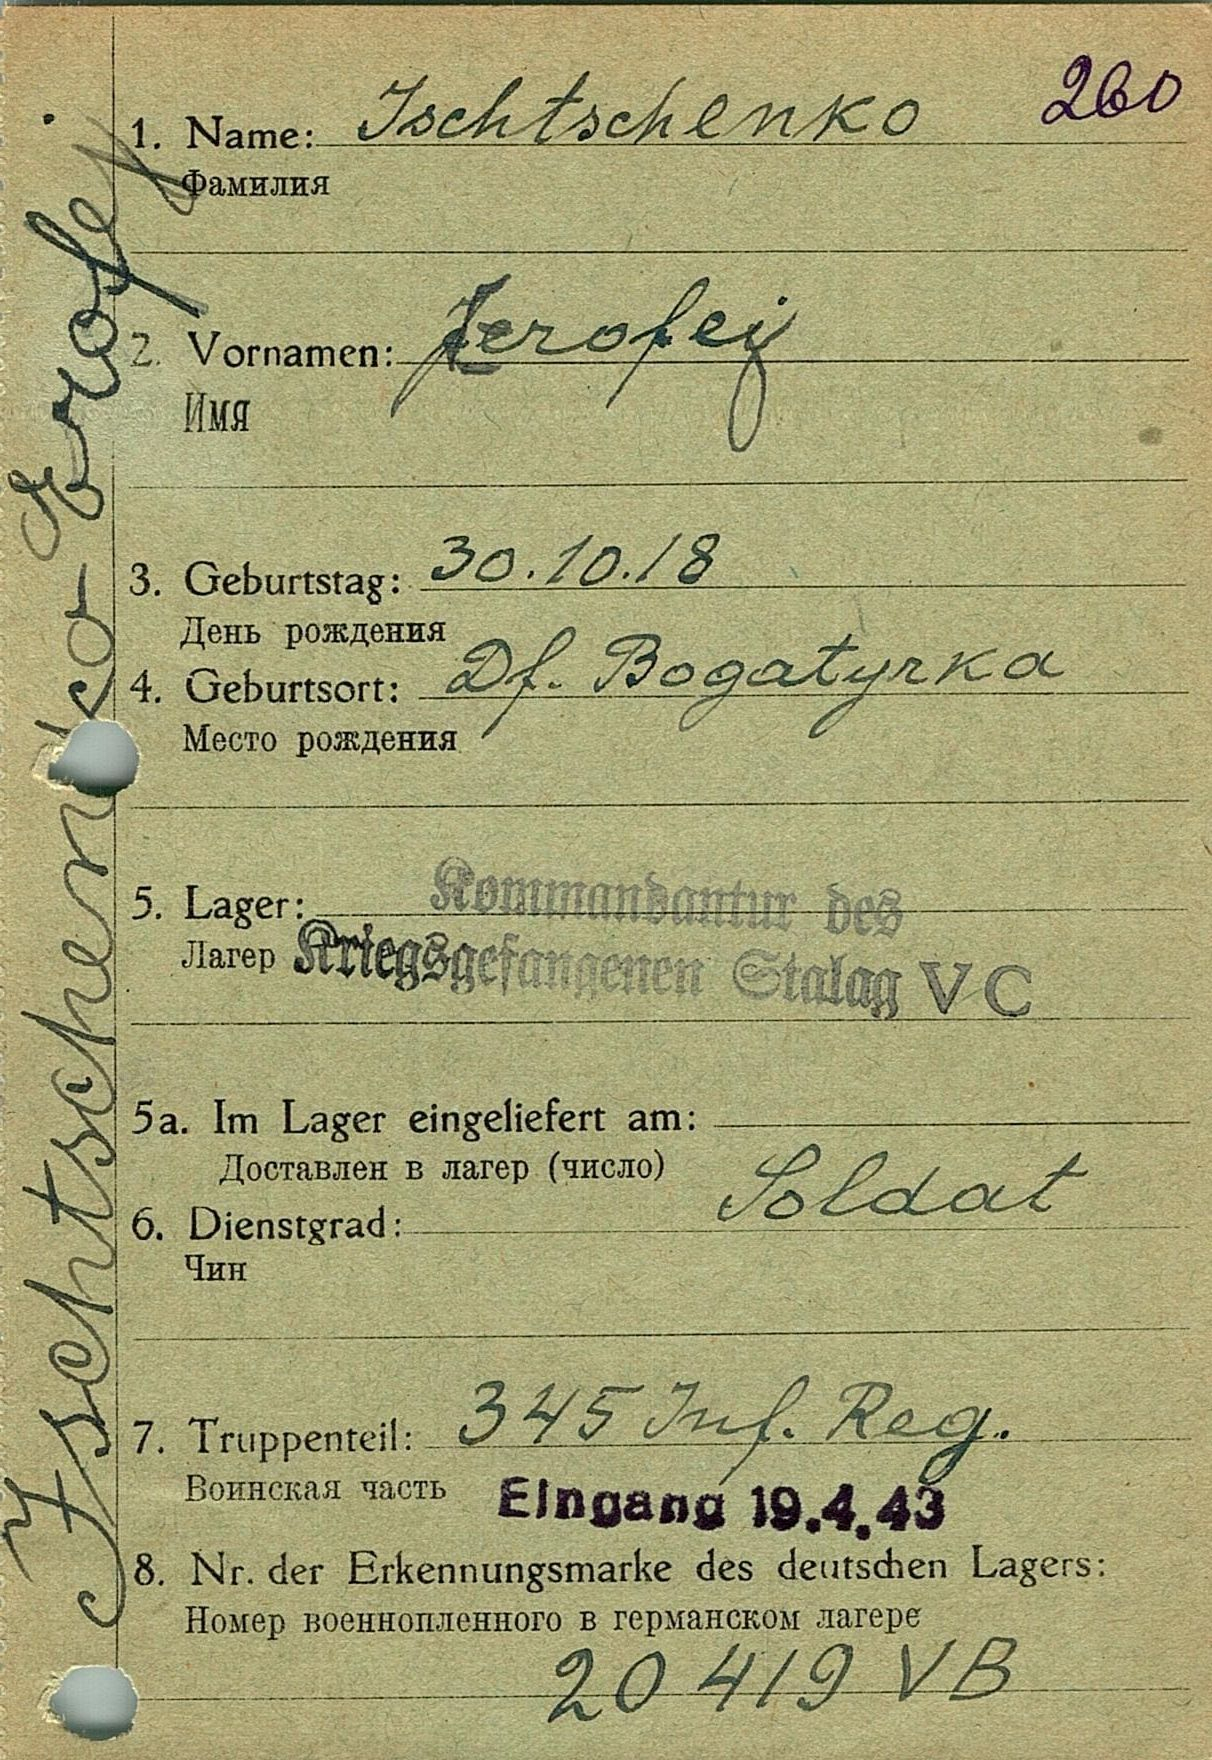 260
1. Name: Ischtschenko
Фамилия
2. Vornamen: Jerofej
Имя
3. Geburtstag: 30.10.18
День рождения
4. Geburtsort: Df. Bogatyrka
Место рождения
5. Lager: Kommandantur des
Лагер Kriegsgefangenen Stalag V C
5a. Im Lager eingeliefert am:
Доставлен в лагер (число)
6. Dienstgrad: Soldat
Чин
7. Truppenteil: 345 Inf. Reg.
Воинская часть Eingang 19.4.43
8. Nr. der Erkennungsmarke des deutschen Lagers:
Номер военнопленного в германском лагере
20419 VB
Ischtschenko Erofej